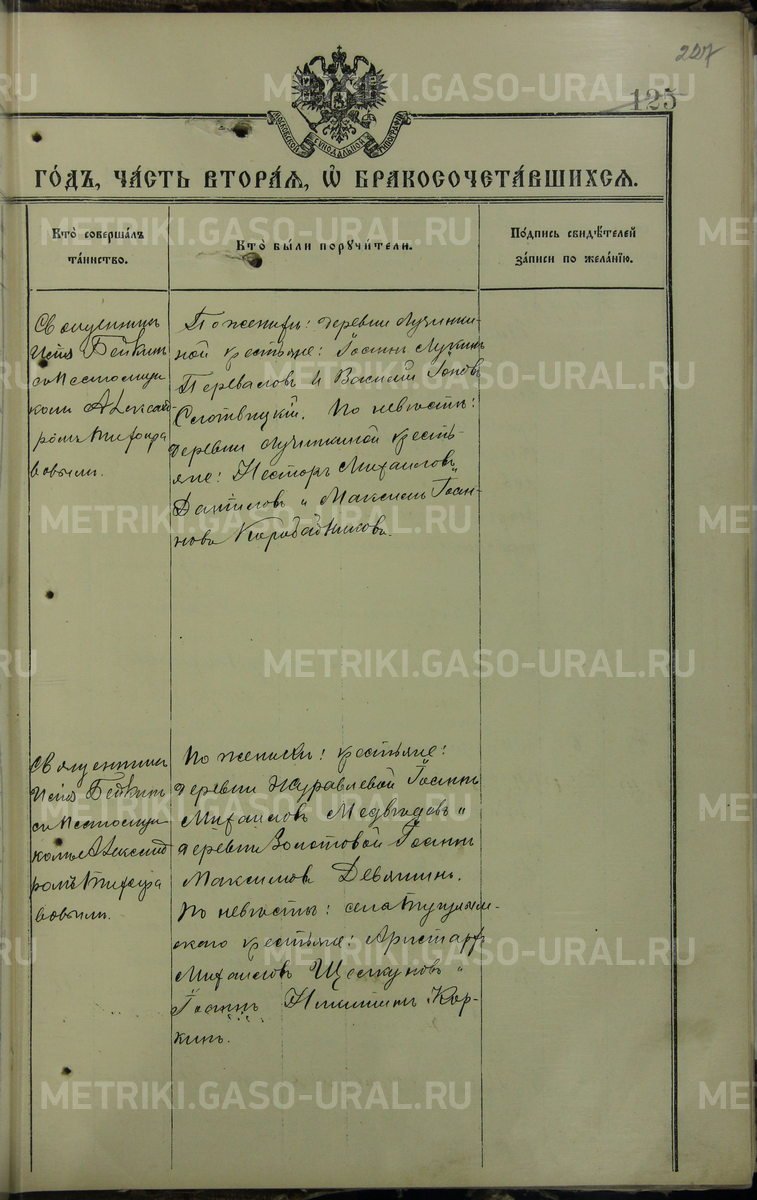 227
125
МОСКОВСКОЙ СѴНОДАЛЬНОЙ ТИПОГРАФІИ
ГО́ДЪ, ЧА́СТЬ ВТОРА́Я, Ѡ БРАКОСОЧЕТА́ВШИХСЯ.
Кто̀ соверша́лъ
та́инство.
Кто̀ бы́ли поручи́тели.
По́дпись свидѣ́телей
за́писи по жела́нїю.
Священникъ
Бейкинъ
съ псаломщи-
комъ Александ-
ромъ
По женихѣ: деревни Лучинки-
ной крестьяне: Іоаннъ Лукинъ
Переваловъ и Василій Іоновъ
Слотвицкій. По невѣстѣ:
деревни Лучинкиной кресть-
яне: Несторъ Михаиловъ
Даниловъ и Максимъ Іоан-
новъ
Священникъ
Бейкинъ
съ псаломщи-
комъ Александ-
ромъ
По женихѣ: крестьяне:
деревни Журавлевой Іоаннъ
Михаиловъ Медвѣдевъ и
деревни Золотовой Іоаннъ
Максимовъ Девяшинъ.
По невѣстѣ: села
скаго крестьяне: Аристархъ
Михаиловъ Щелкуновъ и
Іоаннъ Никитинъ Кор-
кинъ.
METRIKI.GASO-URAL.RU